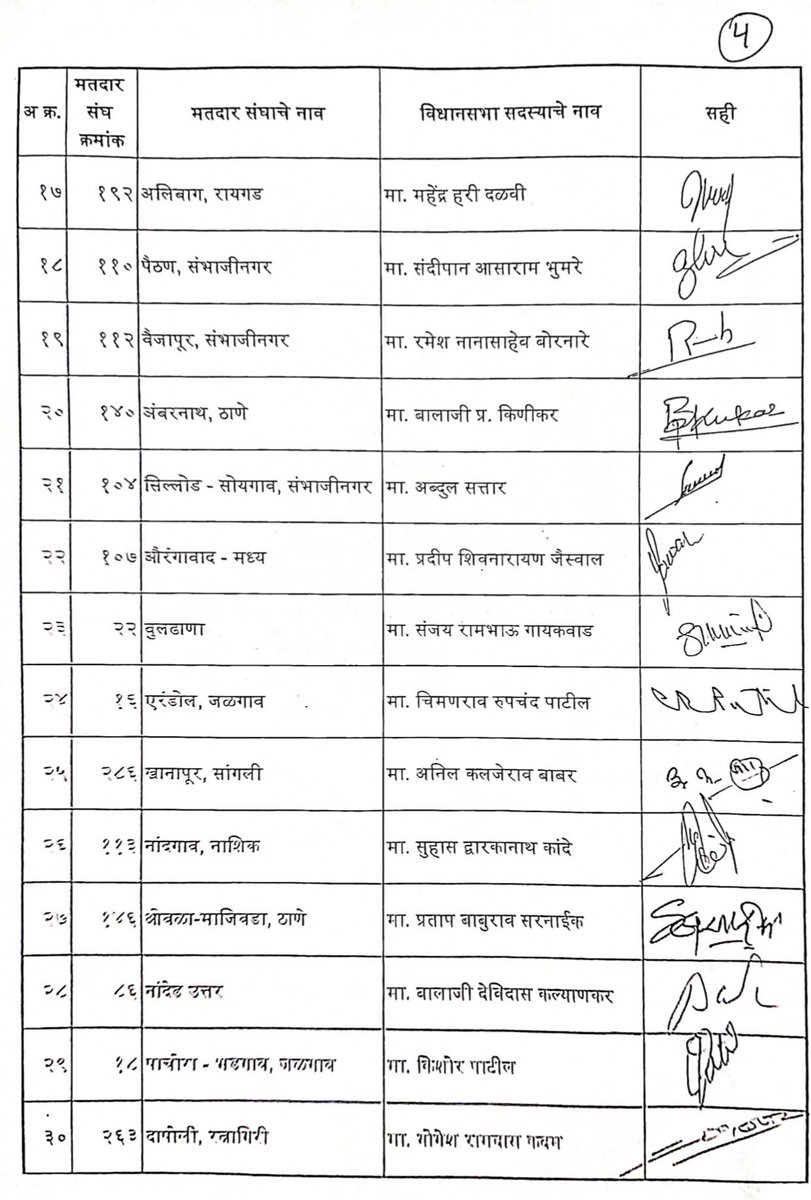 ४
अ क्र.
मतदार संघ क्रमांक
मतदार संघाचे नाव
विधानसभा सदस्याचे नाव
सही
१७ १९२ अलिबाग, रायगड मा. महेंद्र हरी दळवी
१८ ११० पैठण, संभाजीनगर मा. संदीपान आसाराम भुमरे
१९ ११२ वैजापूर, संभाजीनगर मा. रमेश नानासाहेव बोरनारे
२० १४० अंबरनाथ, ठाणे मा. बालाजी प्र. किणीकर
२१ १०४ सिल्लोड - सोयगाव, संभाजीनगर मा. अब्दुल सत्तार
२२ १०७ औरंगावाद - मध्य मा. प्रदीप शिवनारायण जैस्वाल
२३ २२ वुलढाणा मा. संजय रामभाऊ गायकवाड
२४ १६ एरंडोल, जळगाव मा. चिमणराव रुपचंद पाटील
२५ २८६ खानापूर, सांगली मा. अनिल कलजेराव बाबर
२६ ११३ नांदगाव, नाशिक मा. सुहास द्वारकानाथ कांदे
२७ १४६ ओवळा-माजिवडा, ठाणे मा. प्रताप बाबुराव सरनाईक
२८ ८६ नांदेड उत्तर मा. बालाजी देविदास कल्याणकर
२९ १८ पाचोरा - भडगाव, जळगाव मा. किशोर पाटील
३० २६३ दापोली, रत्नागिरी मा. योगेश रामदास कदम